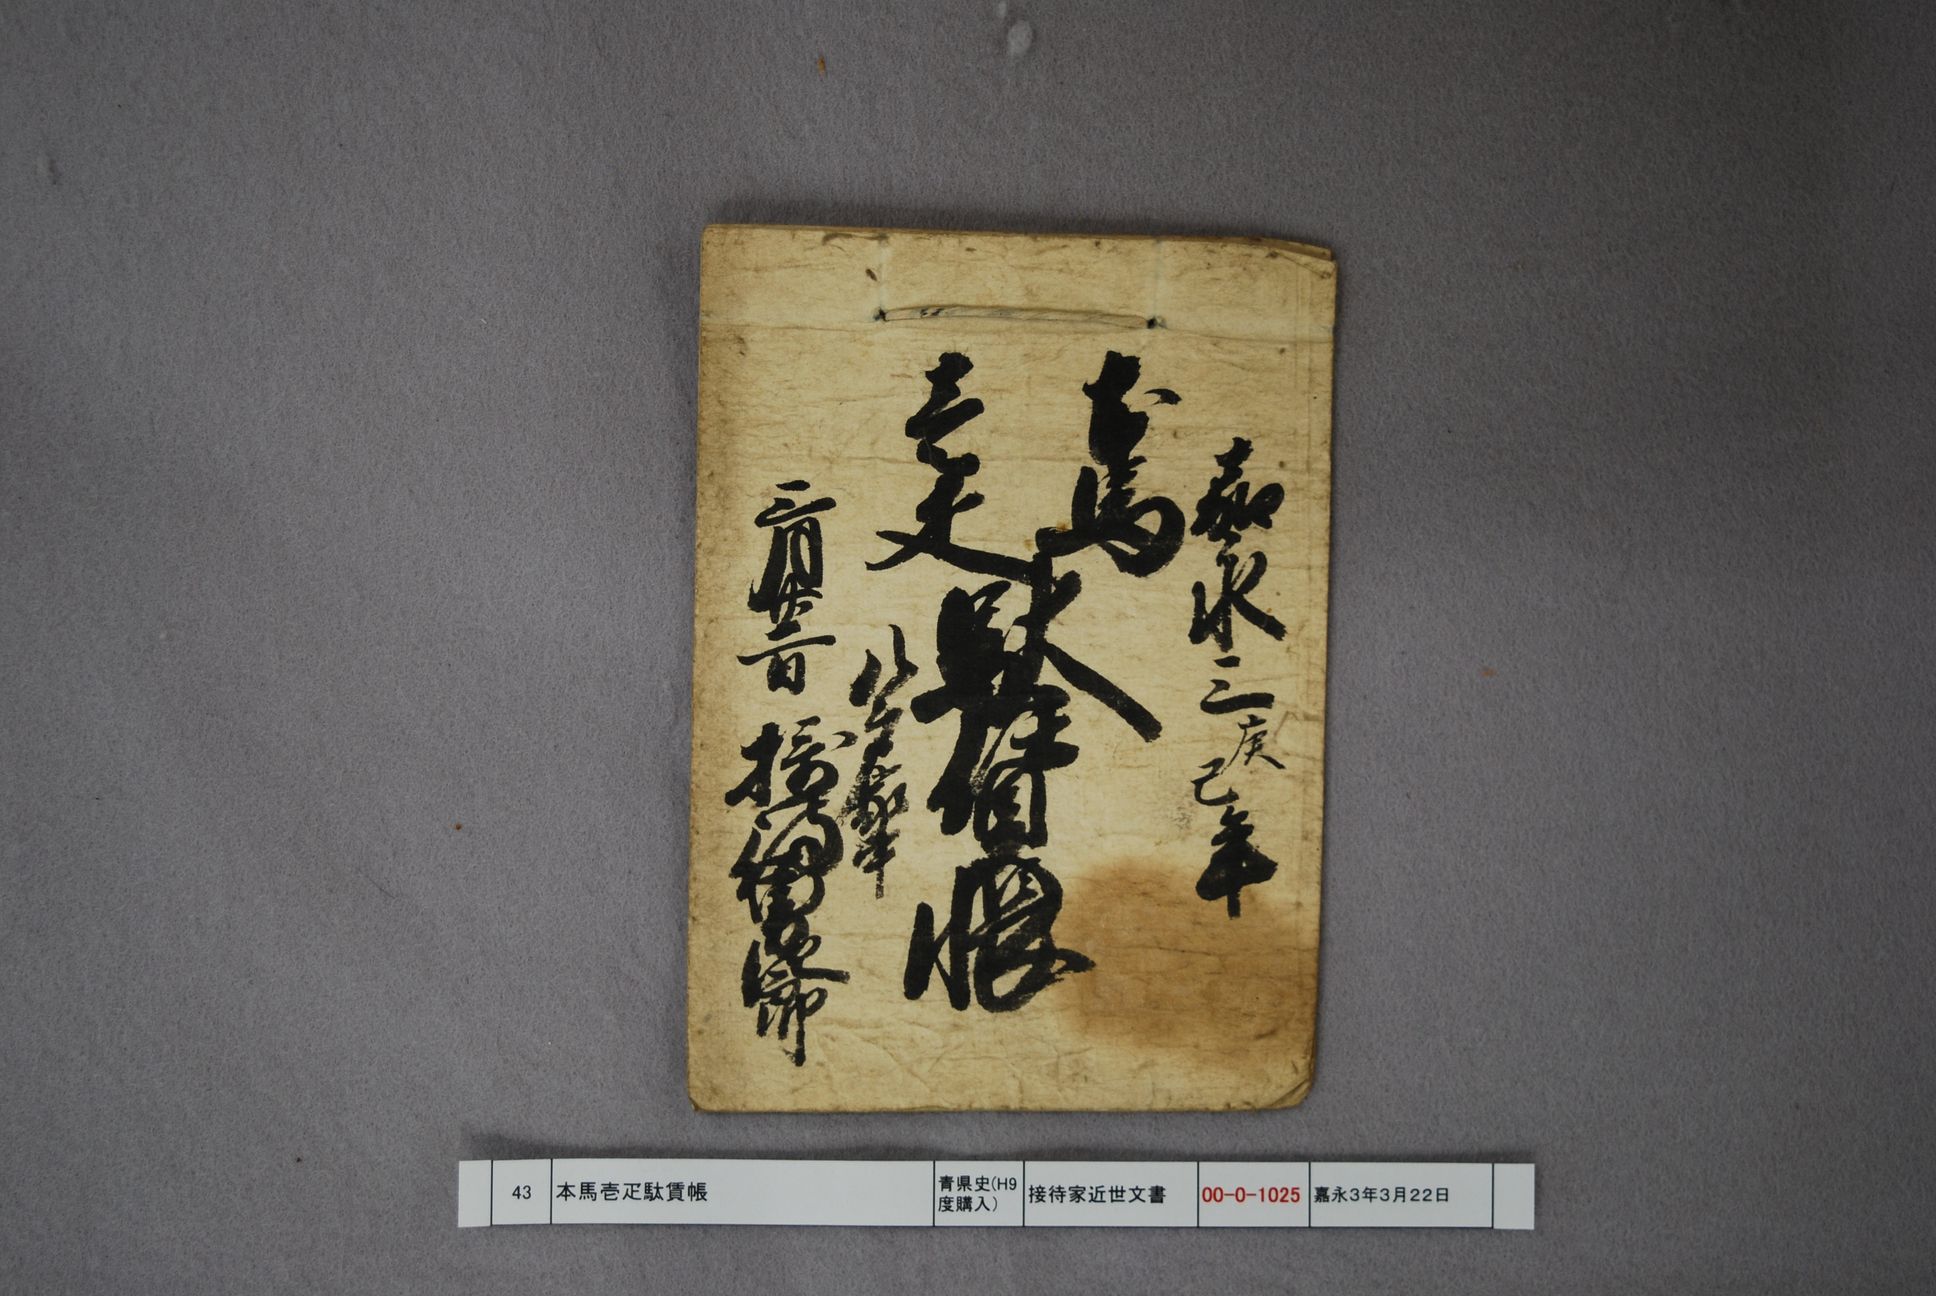 嘉永三庚
己年
本馬
壱疋
駄賃帳
三月廿二日
43
本馬壱疋駄賃帳
青県史(H9
度購入)
接待家近世文書
00-0-1025
嘉永3年3月22日